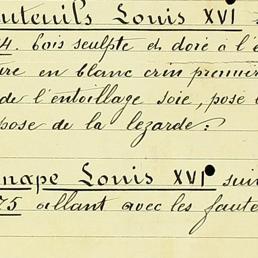 auteuils Louis XVI
4. bois sculpte et doié à l'é
ure en blanc crin premier
de l'entoillage soie, pose
pose de la lezarde:
nape Louis XVI sui
75 allant avec les faute